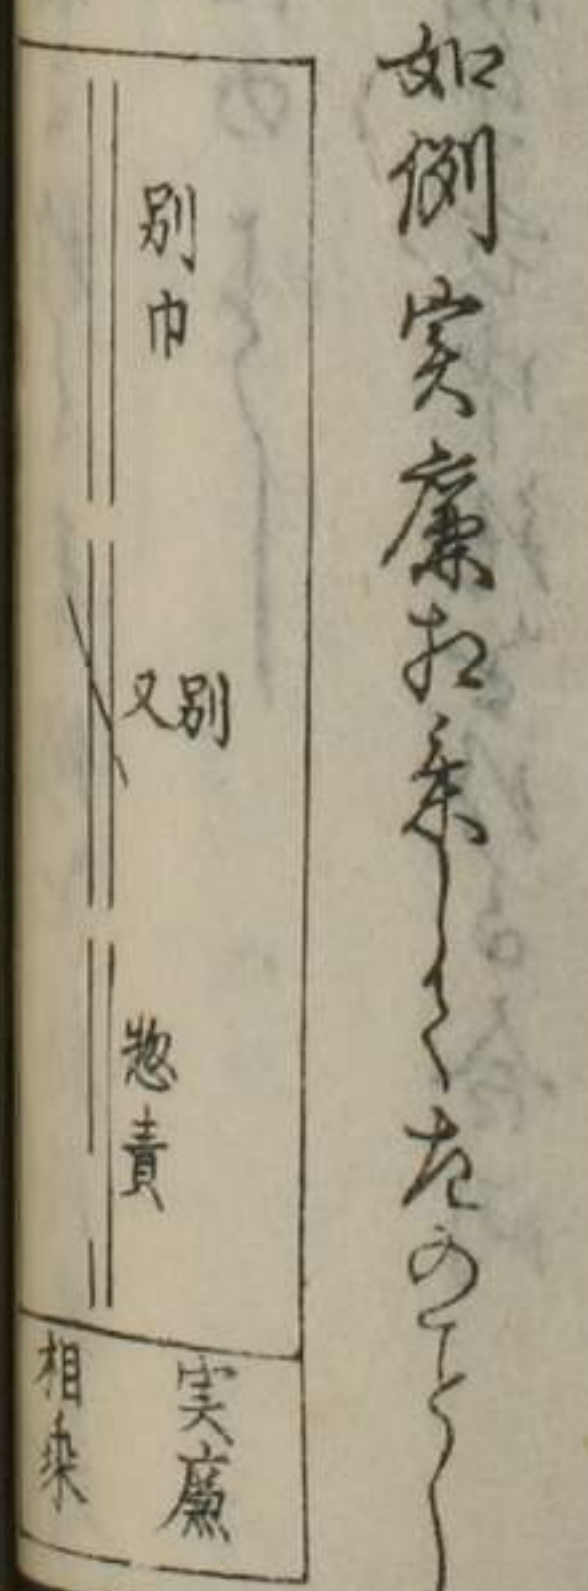 如例実廉相乗して左のことし
別巾
又別
惣責
実廉
相乗